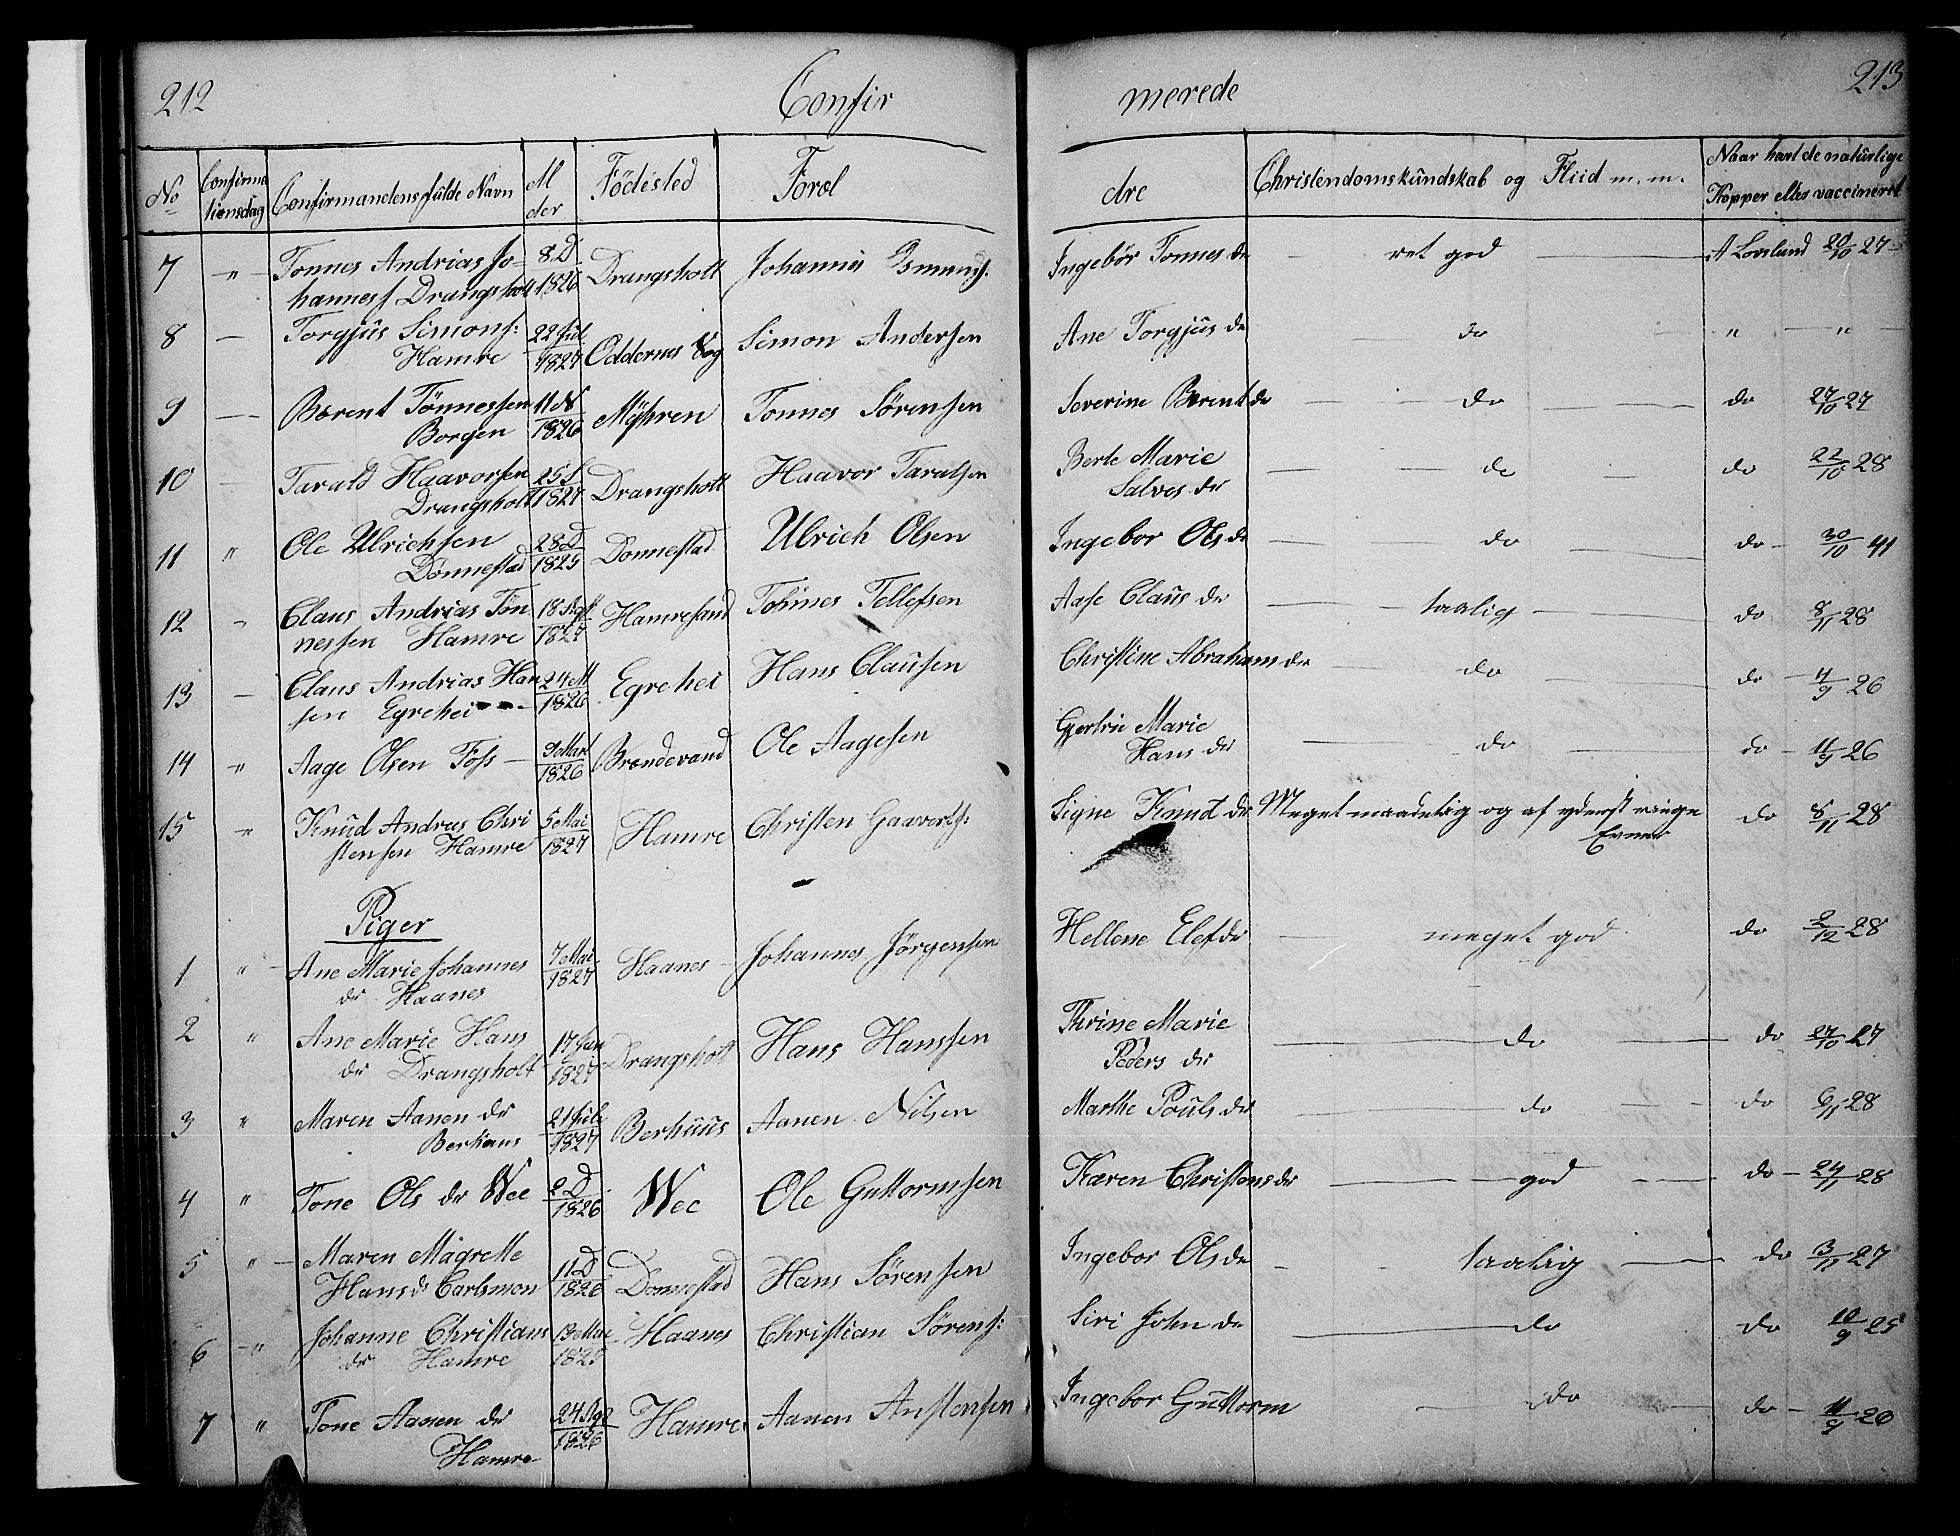 212 Confir merede 213
No Confirma Confirmandens fulde Navn M Födested Foræl dre Christendomskundskab og Fliid m. m. Naar havt de naturlige
tionsdag der Kopper eller vaccineret
7 " Tonnes Andrias Jo- 8 D Drangsholt Johannes Ingebor Tonnes dr ret god A Lovelund 20/10 27
hanness Drangsholt 1826
8 — Torgjus Simons: 22 Jul Oddernes Sog Simon Andersen Ane Torgjus dr do " "
Hamre 1827
9 — Berent Tönnessen 11 N Myhren Tonnes Sörensen Severine Berent dr do do 27/10 27
Borgen 1826
10 — Tarald Haavorsen 25 S Drangsholt Haavor Taralsen Berte Marie do do 22/10 28
Drangsholt 1827 Salves dr
11 " Ole Ulrichsen 28 D Donnestad Ulrich Olsen Ingebor Ols dr do do 30/10 41
Donnestad 1825
12 " Claus Andrias Tön 18 Agt Hamresand Tönnes Tellefsen Aase Claus dr taalig do 8/11 28
nessen Hamre 1827
13 — Claus Andrias Han 24 M Egrehei Hans Clausen Christine Abraham dr do do 11/9 26
sen Egrehei 1826
14 " Aage Olsen Foss 9 Mart Brændevand Ole Aagesen Gjertrie Marie do do 11/9 26
1826 Hans dr
15 " Knud Andreas Chri 5 Mai Hamre Christen Gaaverts: Signe Knud dr Meget maadelig og af yderst ringe do 8/11 28
stensen Hamre 1827 Evner
Piger
1 " Ane Marie Johannes 7 Mai Haanes Johannes Jörgensen Hellene Elef dr meget god do 2/12 28
dr Haanes 1827
2 " Ane Marie Hans 17 Jan Drangsholt Hans Hanssen Thrine Marie do do 27/10 27
dr Drangsholt 1827 Peders dr
3 " Maren Aanen dr 21 Jule Berhuus Aanen Nilsen Marthe Pouls dr do do 6/11 28
Berhuus 1827
4 " Tone Ols dr Wee 2 D Wee Ole Guttormsen Karen Christens dr god do 24/11 28
1826
5 " Maren Magrette 11 D Donnestad Hans Sörensen Ingebor Ols dr taalig do 3/11 27
Hans dr Carlsmon 1826
6 " Johanne Christians 13 Mai Haanes Christian Sörens: Siri John dr do do 10/9 25
dr Hamre 1825
7 " Tone Aanen dr 24 Agt Hamre Aanen Anstensen Ingebor Guttorm do do 11/9 26
Hamre 1826